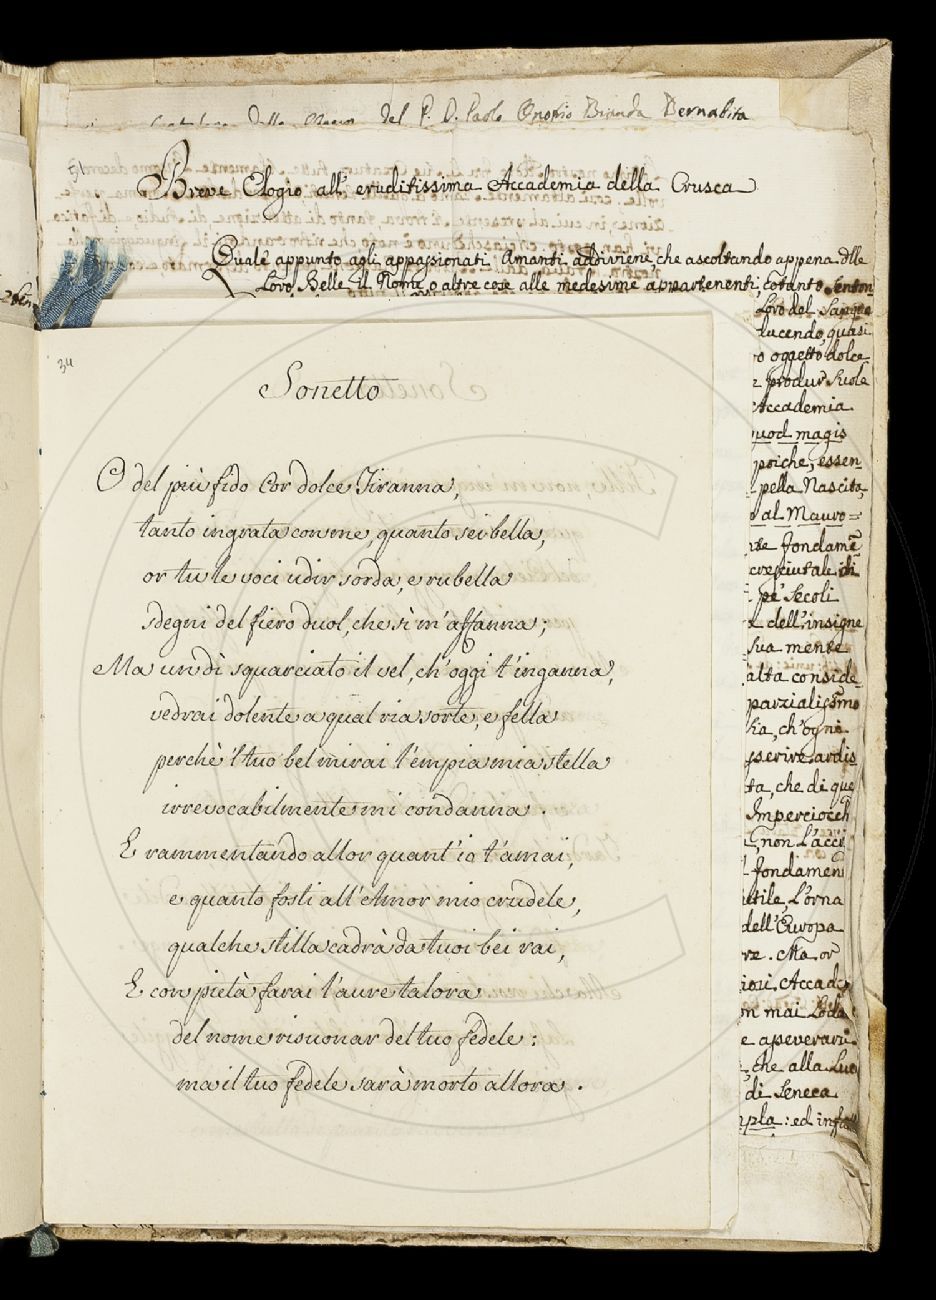 del P. D. Paolo Onofrio Branda Bernabita
51
Breve Elogio all' eruditissima Accademia della Crusca
Quale appunto agli appassionati Amanti addiviene, che ascoltando appena dlle
Loro Belle il Nome, o altre cose alle medesime appartenenti, cotanto senton
Loro del Sangue
lucendo, quasi
oggetto dolce
produr suole
Accademia
quod magis
poiche, essen
pella Nascita,
al Mauro=
fondamē
cresciutale di
pe' secoli
dell'insigne
sua mente
alta conside
parzialissmo
ch'ogni
ardis
ta, che di que
Imperciocch
non l'acci
fondamen
L'orna
dell'Europa
re. Ma or
Accade
on mai Loda
e aseverari
, che alla Luo
di Seneca
: ed infat
34
Sonetto
O del più fido Cor dolce Tiranna,
tanto ingrata con me, quanto sei bella,
or tu le voci udir sorda, e rubella
sdegni del fiero duol, che sì m'affanna;
Ma un dì squarciato il vel, ch'oggi t'inganna,
vedrai dolente a qual ria sorte, e fella
perchè 'l tuo bel mirai l'empia mia stella
irrevocabilmente mi condanna.
E rammentando allor quant'io t'amai,
e quanto fosti all'Amor mio crudele,
qualche stilla cadrà da tuoi bei rai,
E con pietà farai l'aure talora
del nome risuonar del tuo fedele:
ma il tuo fedele sarà morto allora.